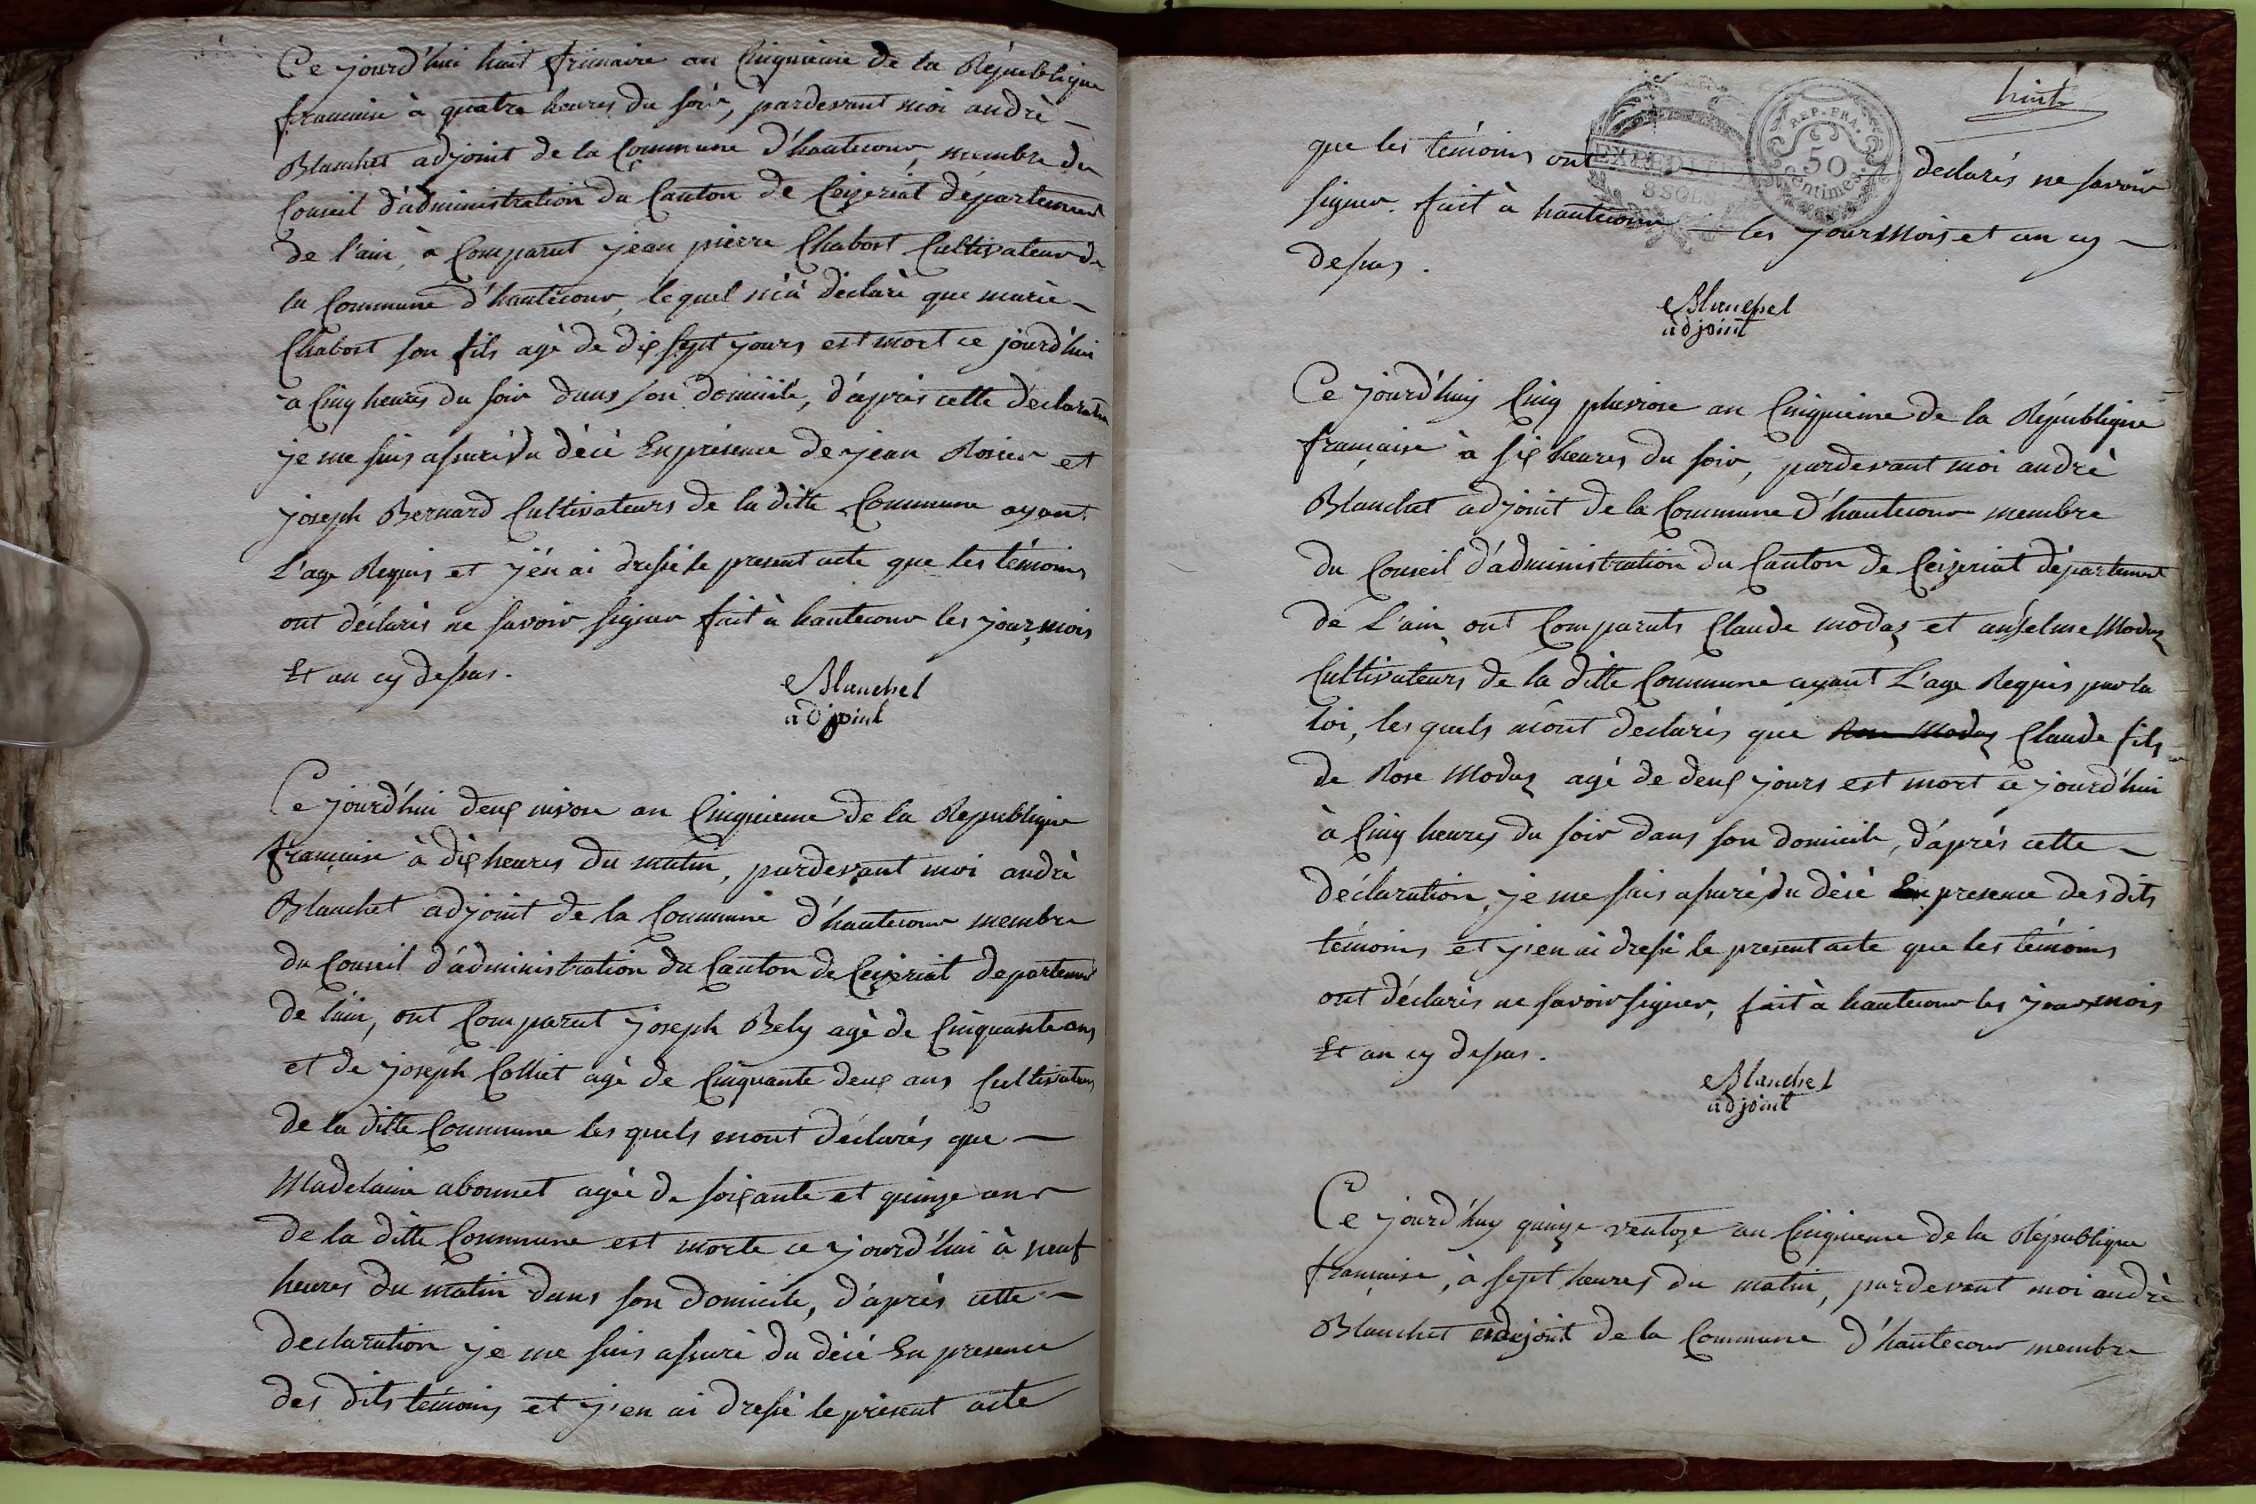 Ce jourd'hui huit frimaire an Cinquieme de la République
francaise à quatre heures du soir, pardevant moi andrè –
Blanchet adjoint de la Commune d'hautecour, membre du
Conseil d'administration du Canton de Ceizeriat département
de l'ain, à Comparut jean pierre Chabort Cultivateur de
la Commune d'hautecour, lequel m'a déclarè que marie –
Chabort son fils agé de dix sept jours est mort ce jourd'hui
a Cinq heures du soir dans son domicile, d'après cette déclaration
je me suis assuré du décè En présence de jean Rosier et
joseph Bernard Cultivateurs de la ditte Commune ayant
L'age Requis et j'en ai dressé le present acte que les témoins
ont déclarés ne savoir signer fait à hautecour les jour mois
Et an cy dessus.
Blanchet
adjoint
Ce jourd'hui deux nivose an Cinquieme de la Republique
française à dix heures du matin, pardevant moi andrè
Blanchet adjoint de la Commune d'hautecour membre
du Conseil d'administration du Canton de Ceizeriat departement
de l'ain, ont Comparut joseph Bely agé de Cinquante ans
et de joseph Colliet agé de Cinquante deux ans Cultivateurs
de la ditte Commune les quels mont déclarés que –
Madelaine abonnet agée de soixante et quinze ans
de la ditte Commune est morte ce jourd'hui à neuf
heures du matin dans son domicile, d'après cette –
declaration je me suis assuré du décé En presence
des dits témoins et j'en ai dressé le présent acte
huit
EXPED
8 SOLS
REP. FRA.
50
Centimes.
que les témoins ont declarés ne savoir
signer. fait à hautecour – les jour mois et an cy –
dessus.
Blanchet
adjoint
Ce jourd'huy Cinq pluviose an Cinquieme de la République
française à six heures du soir, pardevant moi andrè
Blanchet adjoint de la Commune d'hautecour membre
du Conseil d'administration du Canton de Ceizeriat département
de L'ain ont Comparuts Claude modas et anselme Modas
Cultivateurs de la ditte Commune ayant L'age Requis par la
loi, les quels m'ont declarés que Rose Modas Claude fils
de Rose Modas agé de deux jours est mort ce jourd'hui
à Cinq heures du soir dans son domicile, d'après cette –
déclaration, je me suis assuré du décé En presence des dits
témoins et j'en ai dressé le present acte que les témoins
ont déclarés ne savoir signer, fait à hautecour les jour mois
Et an cy dessus.
Blanchet
adjoint
Ce jourd'huy quinze ventoze an Cinquieme de la République
française, à sept heures du matin, pardevant moi andrè
Blanchet adjoint de la Commune d'hautecour membre